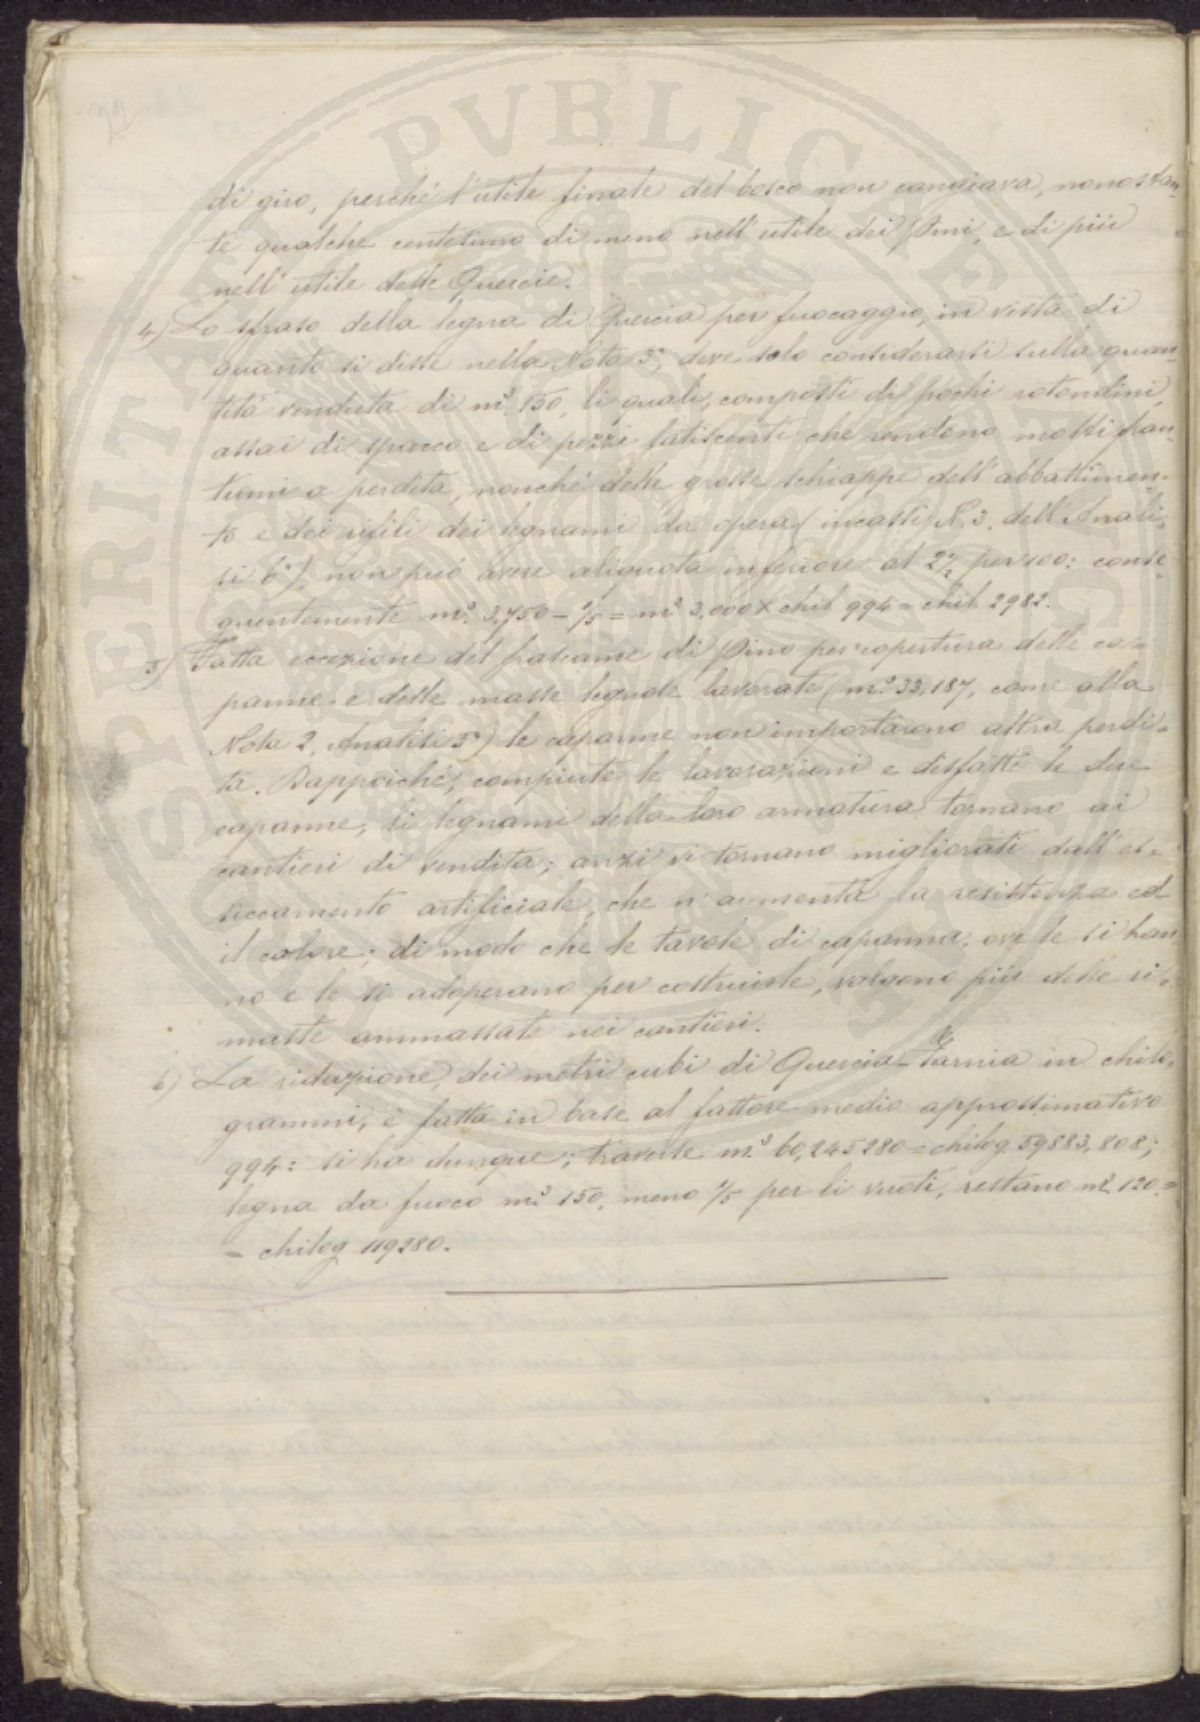 di giro, perché l'utile finale del bosco non cangiava, nonostan-
te qualche centesimo di meno nell'utile dei Pini, e di più
nell'utile delle Quercie.
4) Lo sfraso della legna di Quercia per fuocaggio, in vista di
quanto si disse nella Nota 3ª, deve solo considerarsi sulla quan-
tità venduta di m.³ 150, li quali, composti di pochi rotondini,
assai di spacco e di pezzi fatiscenti che rendono molti fran-
tumi a perdita, nonché delle grosse schiappe dell'abbattimen-
to e dei utili dei legnami da opera (incassi N. 3. dell'Anali-
si 6ª), non può avere aliquota inferiore al 2½ per 100: conse-
guentemente m.³ 3,750 – 1/5 = m.³ 3,000 X chil 994 = chil. 2982.
5) Fatta eccezione del frascame di Pino per copertura delle ca-
panne e delle masse legnose lavorate (m.³ 33,187, come alla
Nota 2, Analisi 5ª) le capanne non importarono altra perdi-
ta. Dappoiché, compiute le lavorazioni e disfatte le due
capanne, li legnami della loro armatura tornano ai
cantieri di vendita; anzi vi tornano migliorati dall'es-
siccamento artificiale, che n'aumenta la resistenza ed
il colore; di modo che le tavole di capanna, ove le si han-
no e le si adoperano per costruirle, valgono più delle ri-
maste ammassate nei cantieri.
6) La riduzione, dei metri cubi di Quercia-Farnia in chilo-
grammi, è fatta in base al fattore medio approssimativo
994: si ha dunque; traverse m.³ 60,245280 = chilog. 59883,808;
legna da fuoco m.³ 150, meno 1/5 per li vuoti, restano m.³ 120 =
= chilog 119280.